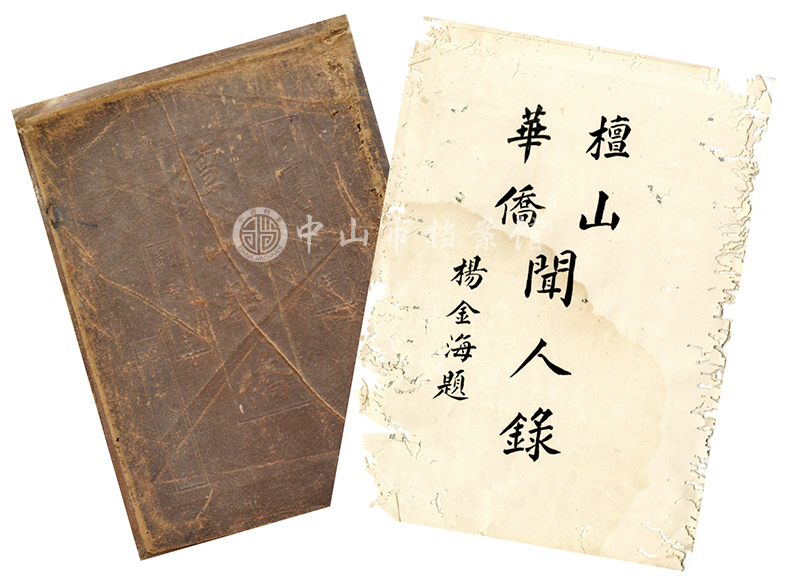 檀山
華僑
聞人錄
楊金海題
中山市档案馆